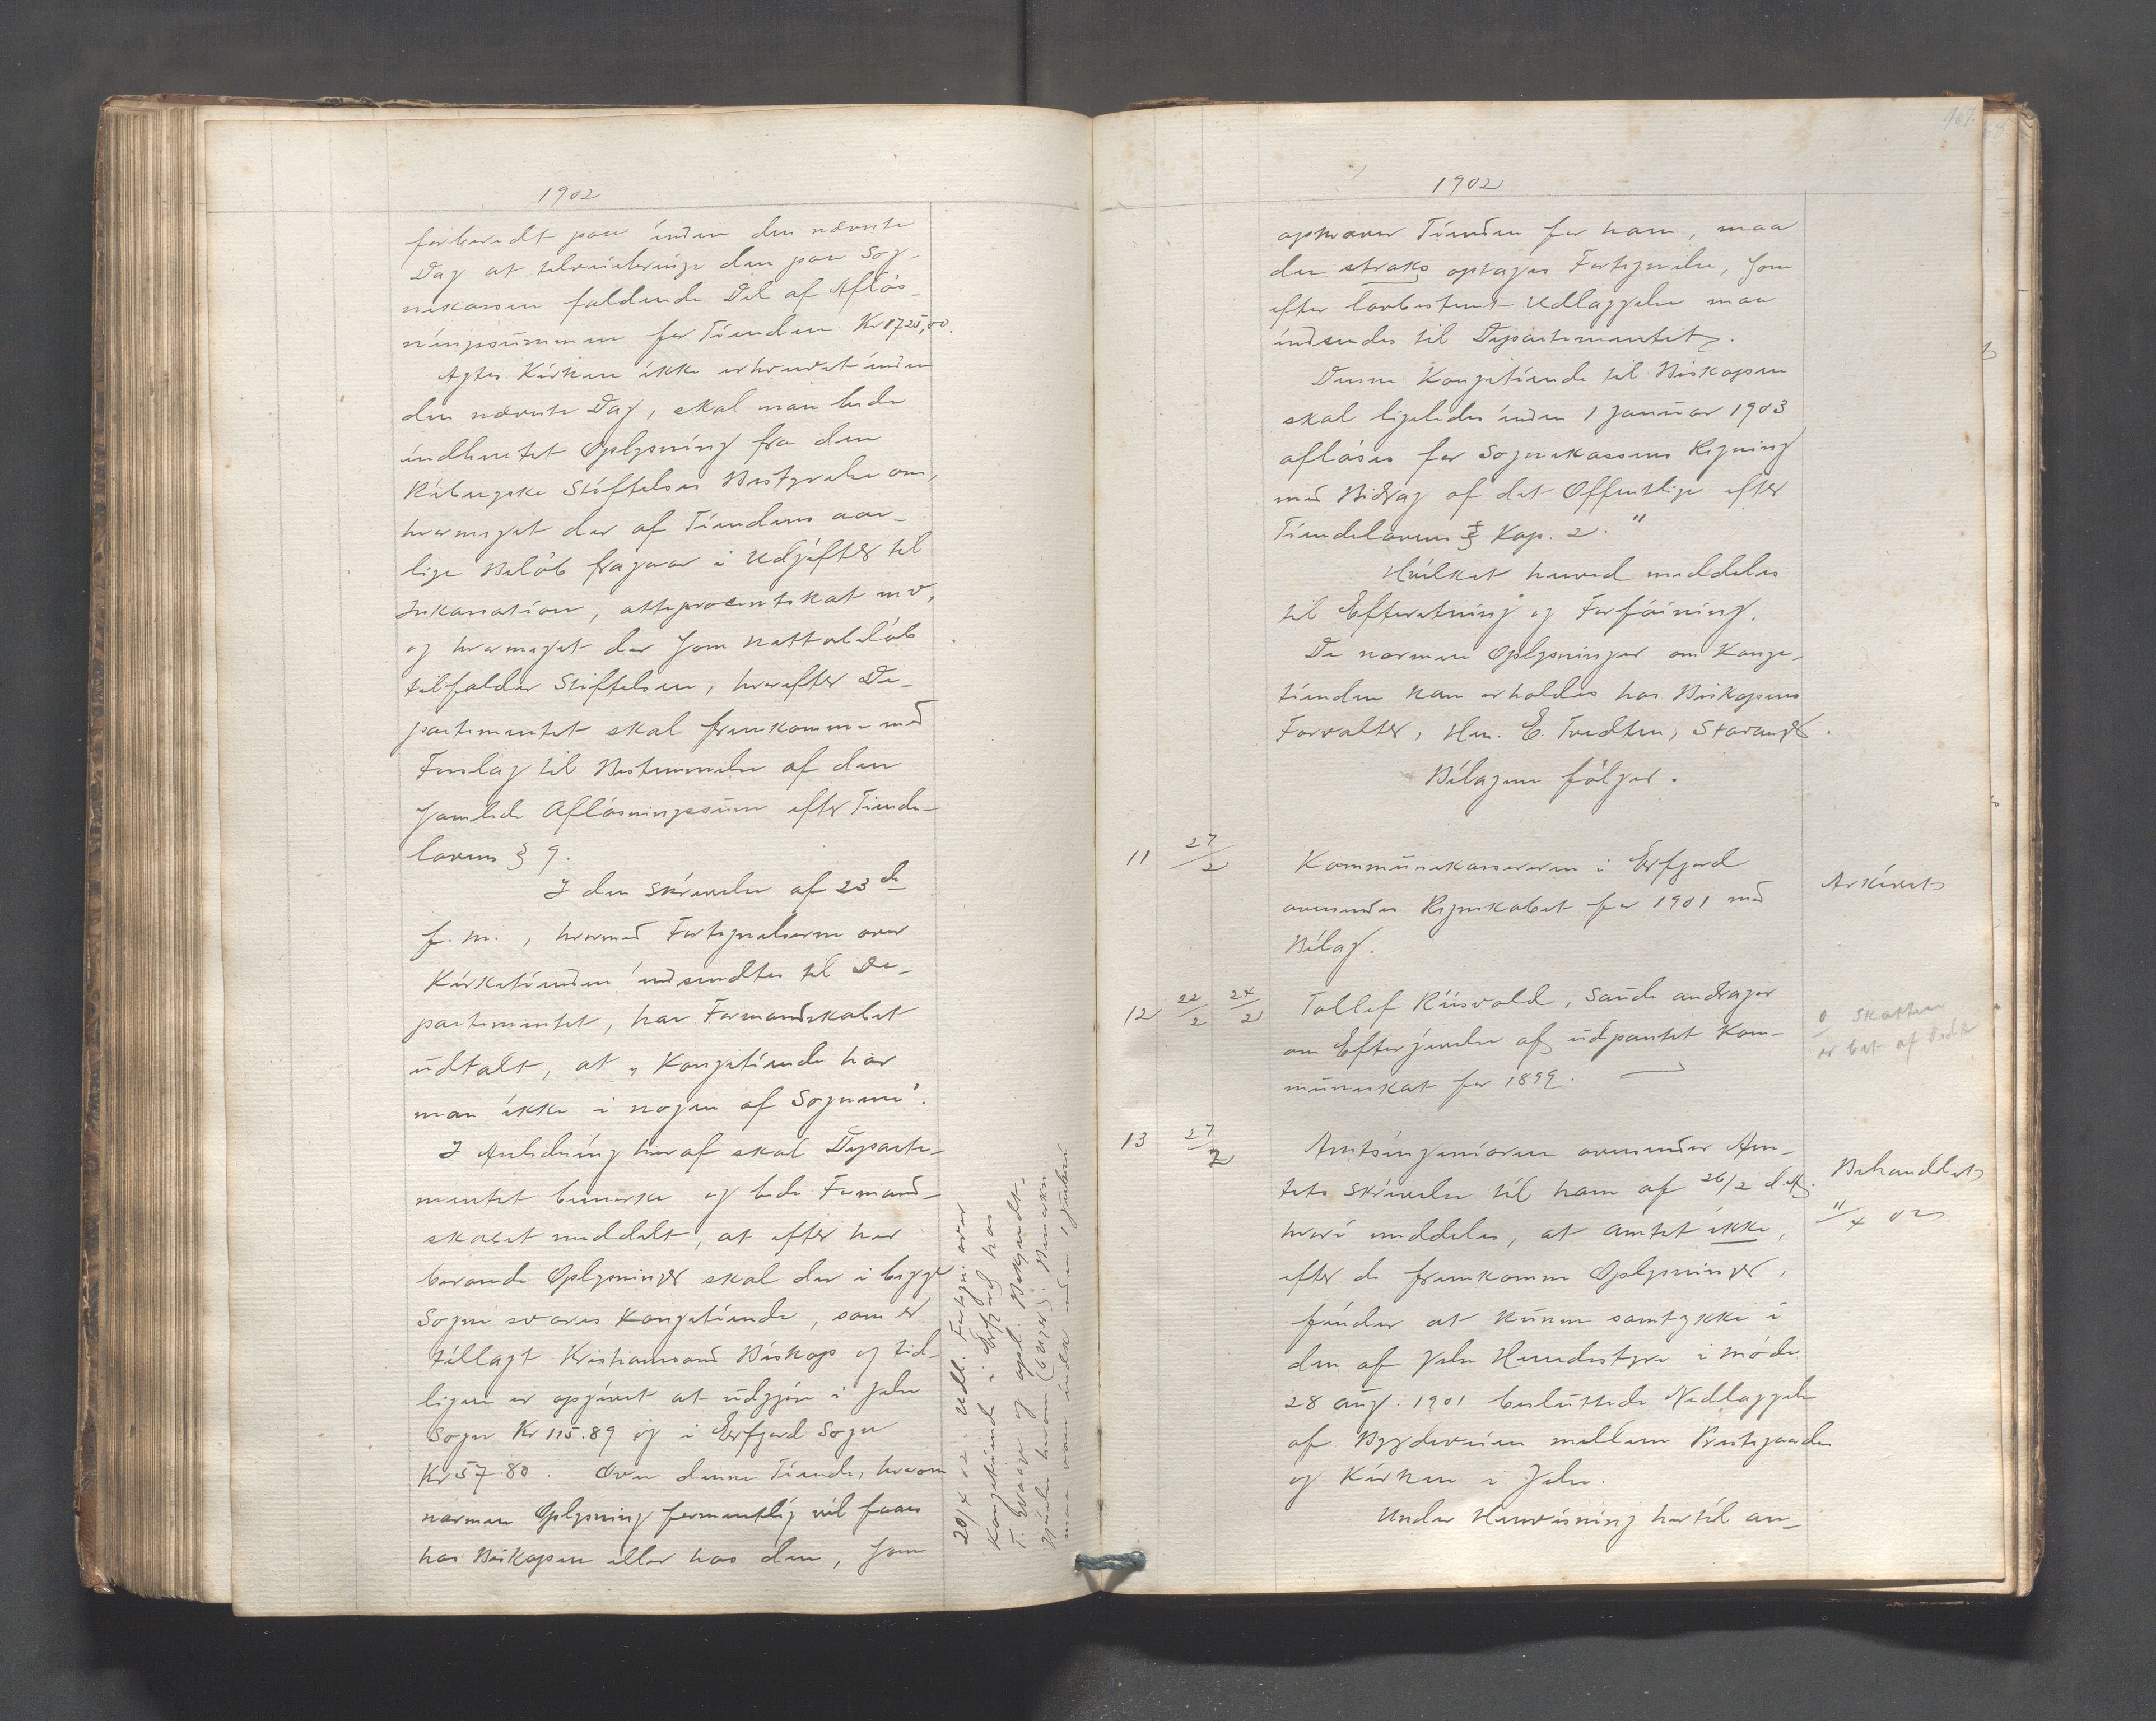 1902
forberedt paa inden den nævnte
Dag at tilveiebringe den paa Sog-
nekassen faldende Del af Afløs-
ningssummen for Tienden Kr 1725,00.
Agtes Kirken ikke erhvervet inden
den nævnte Dag, skal man bede
indhentet Oplysning fra den
Stiftelses Bestyrelse om,
hvormeget der af Tiendens aar-
lige Beløb fragaar i Udgifter til
Inkassation, otteprocentskat m v,
og hvormeget der som Nettobeløb
tilfalder Stiftelsen, hvorefter De-
partementet skal fremkomme med
Forslag til Bestemmelse af den
samlede Afløsningssum efter Tiende-
lovens § 9.
I den Skrivelse af 23de
f. m., hvormed Fortegnelserne over
Kirketienden indsendtes til De-
partementet, har Formandskabet
udtalt, at „Kongetiende har
man ikke i nogen af Sognene".
I Anledning heraf skal Departe-
mentet bemærke og bede Formand-
skabet meddelt, at efter her
berænde Oplysninger skal der i begge
Sogne svares Kongetiende, som er
tillagt Kristianssand Biskop og tid-
ligere er opgivet at udgjøre i Jelse
Sogn Kr 115.89 og i Erfjord Sogn
Kr 57.80. Over denne Tiende, hvorom
nærmere Oplysning formentlig vil faaes
hos Biskopen eller hos den, som
20/4 02. Udl. Fortegn. over
Kongetiende i Erfjord hos
T. og opsl. Bekjendt-
gjørelse herom
maa være inden 1 Juli
1902
opkræver Tienden for ham, maa
der straks optages Fortegnelse, som
efter lovbestemt Udlæggelse maa
indsendes til Departementet.
Denne Kongetiende til Biskopen
skal ligeledes inden 1 Januar 1903
afløses for Sognekassens Regning
med Bidrag af det Offentlige efter
Tiendelovens Kap. 2."
Hvilket herved meddeles
til Efterretning og Forføining.
De nærmere Oplysninger om Konge-
tienden kan erholdes hos Biskopens
Forvalter, Hr. E. Tvedten, Stavanger.
Bilagene følger.
11 27/2 Kommunekassereren i Erfjord
oversender Regnskabet for 1901 med
Bilag.
Arkivet
12 22/2 24/2 Tollef Riisvold, Saude andrager
om Eftergivelse af udpantet Kom-
muneskat for 1899.
0 Skatten
er bet af
13 27/2 Amtsingeniøren oversender Am-
tets Skrivelse til ham af 26/2 d. A.
hvori meddeles, at Amtet ikke,
efter de fremkomne Oplysninger,
finder at kunne samtykke i
den af Jelse Herredsstyre i Møde
28 Aug. 1901 besluttede Nedlæggelse
af Bygdeveien mellem Præstgaarden
og Kirken i Jelse.
Under Henvisning hertil an-
Behandlet
11/4 02